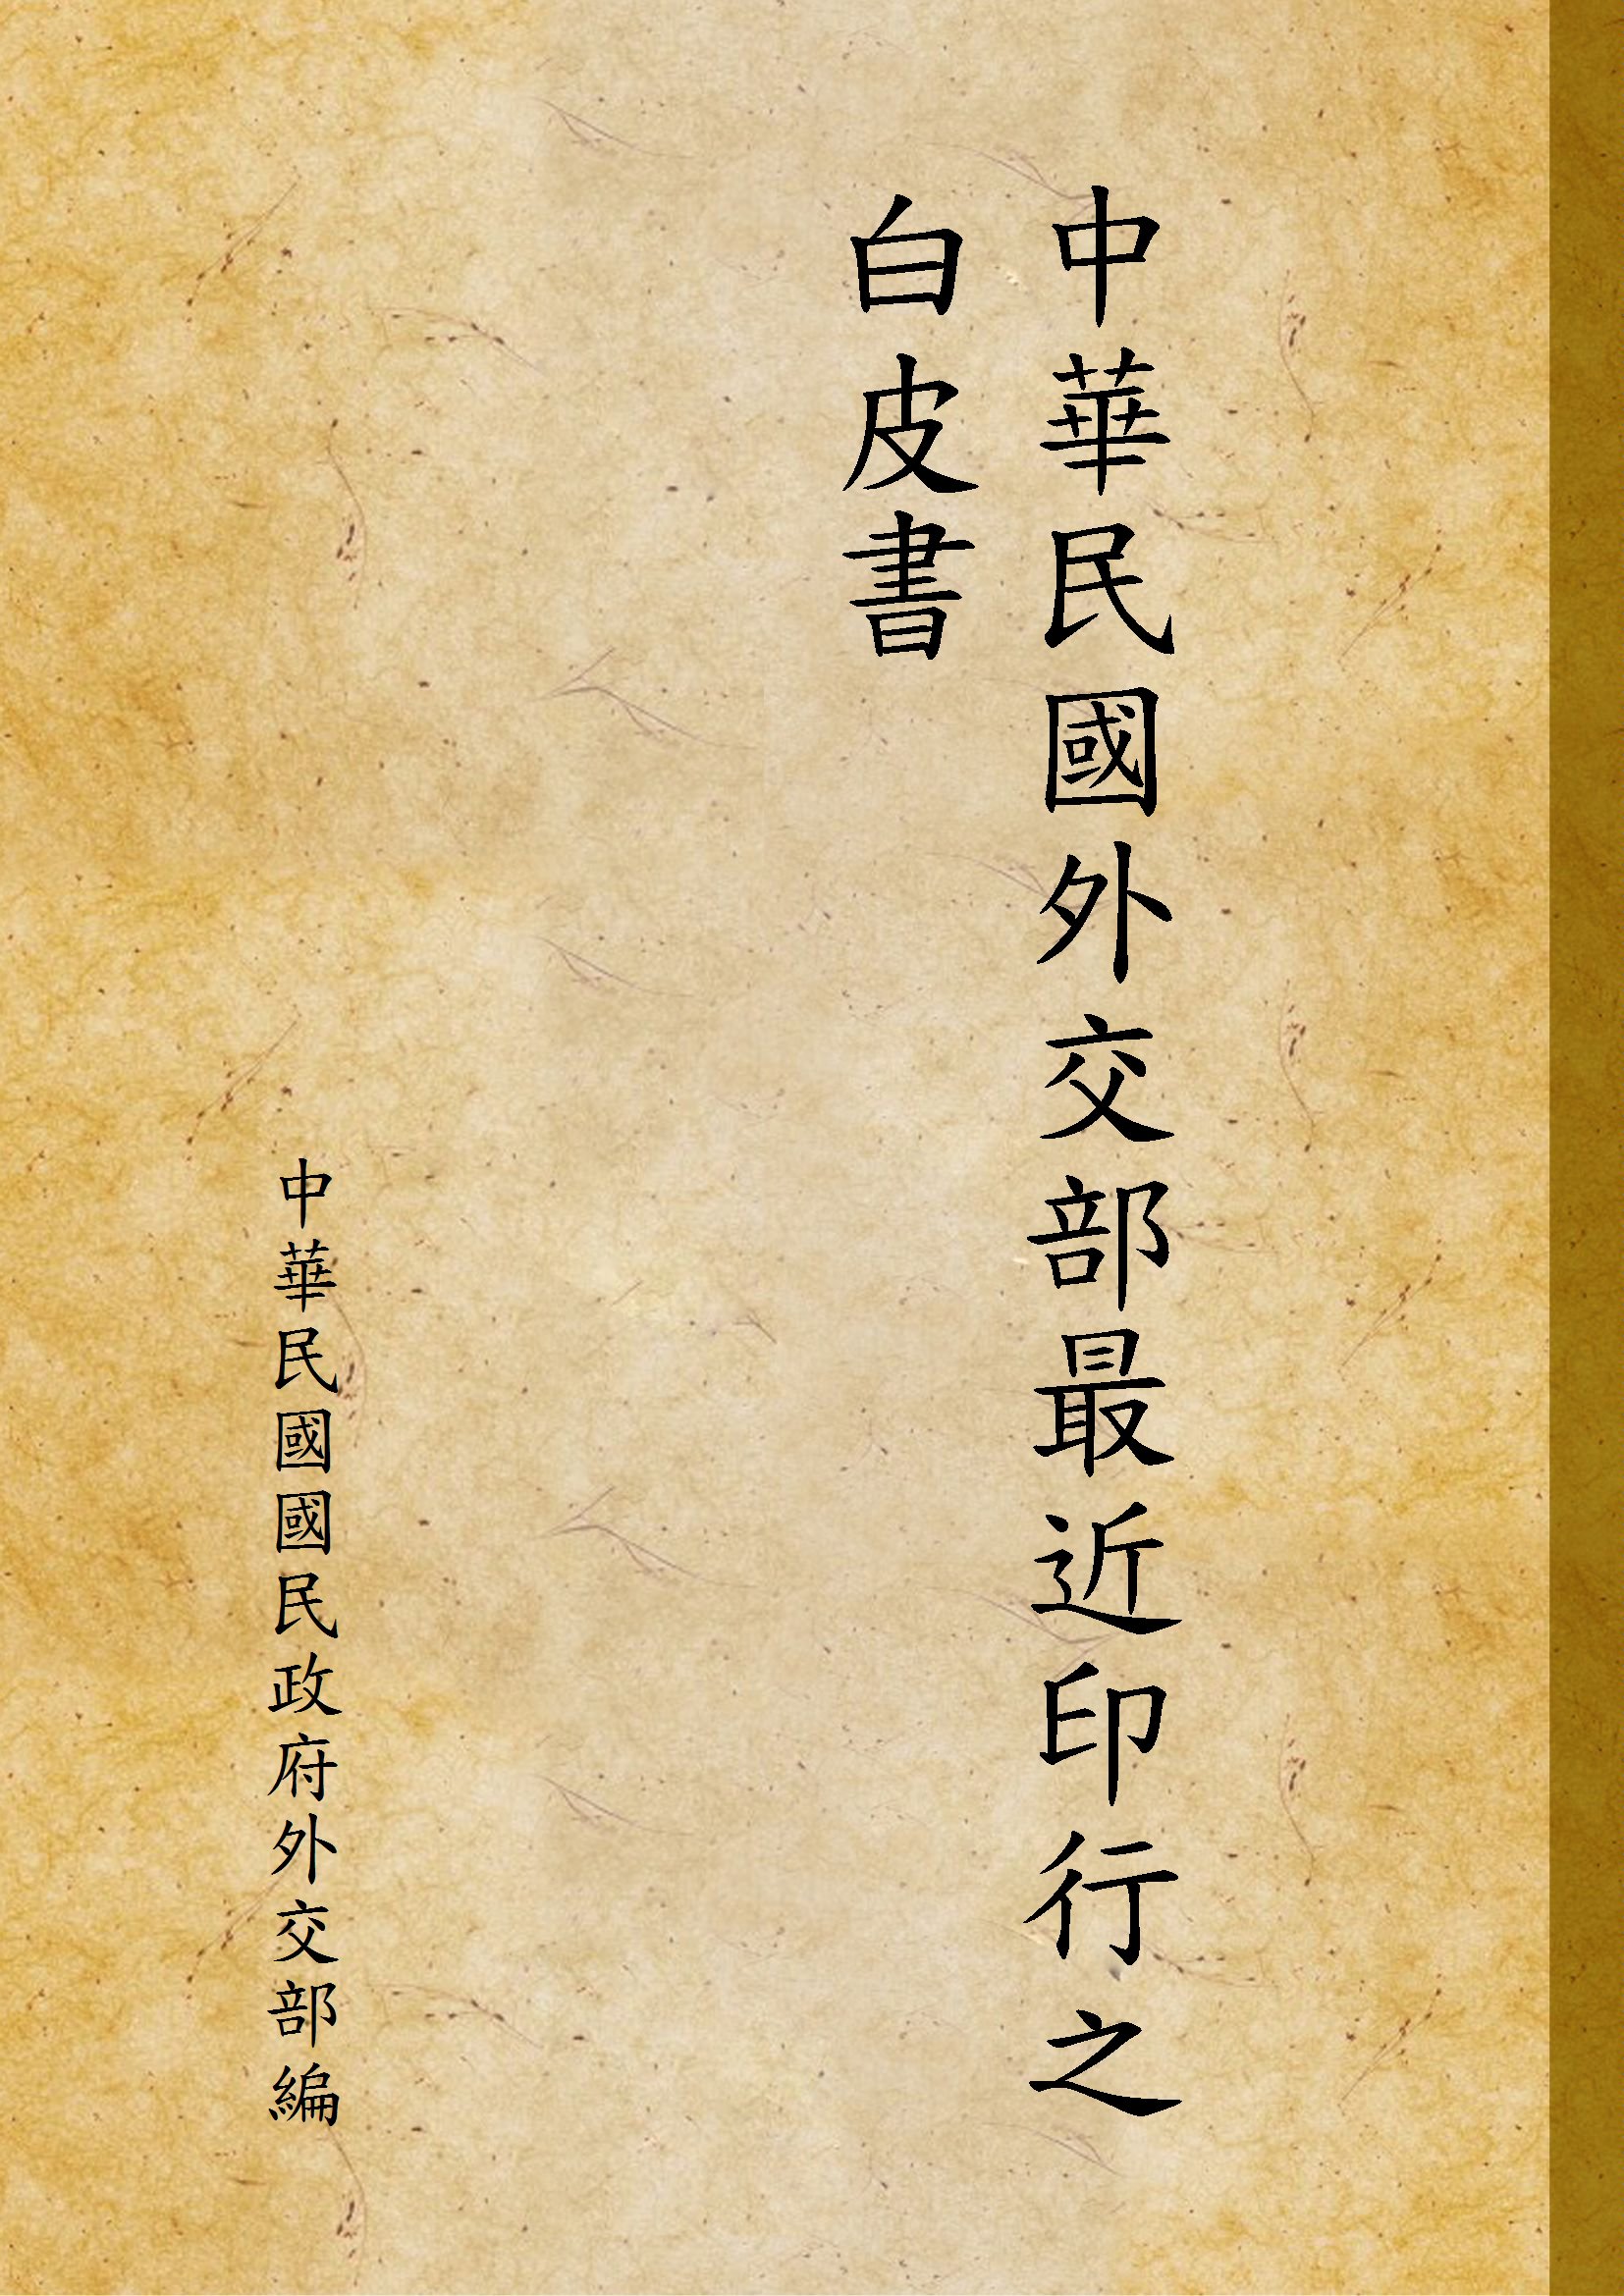 中華民國外交部最近印行之
白皮書
中華民國國民政府外交部編